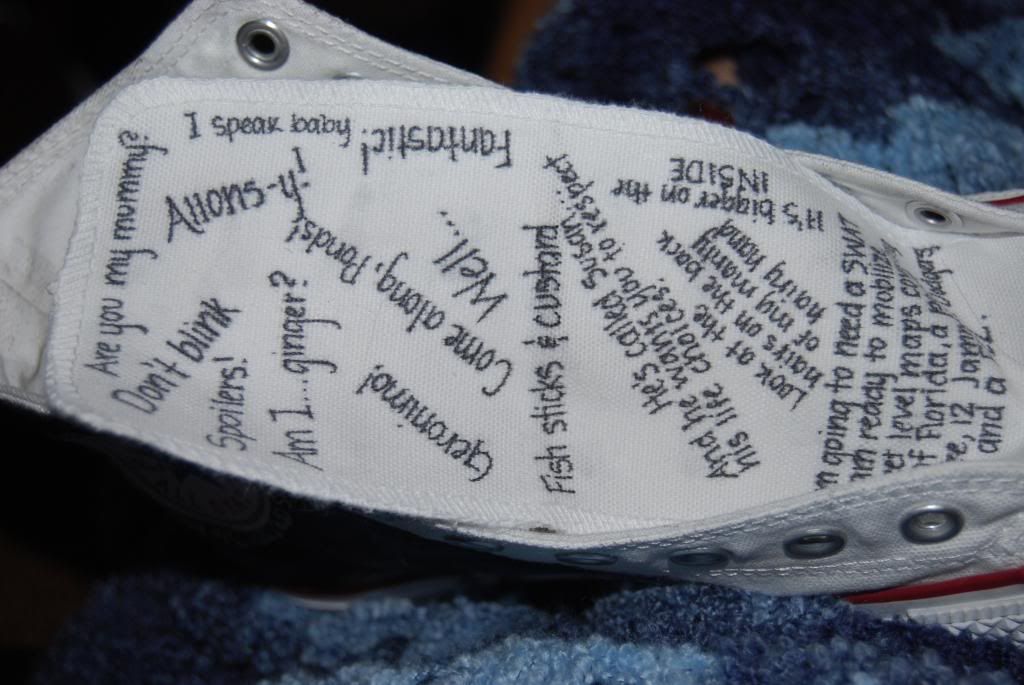 Are you my mummy?
I speak baby
Fantastic!
Allons-y!
Don't blink
Spoilers!
Am I...ginger?
Come along, Ponds!
Well...
Geronimo!
Fish sticks & custard
He's called Susan...
And he wants you to respect
his life choices.
It's bigger on the
INSIDE
Look at the
hairs on the back
of my manly
hairy hand
m going to need a SWAT
am ready to mobilize,
et level maps co
f Florida, a
re, 12 Jamm
and a FEZ.